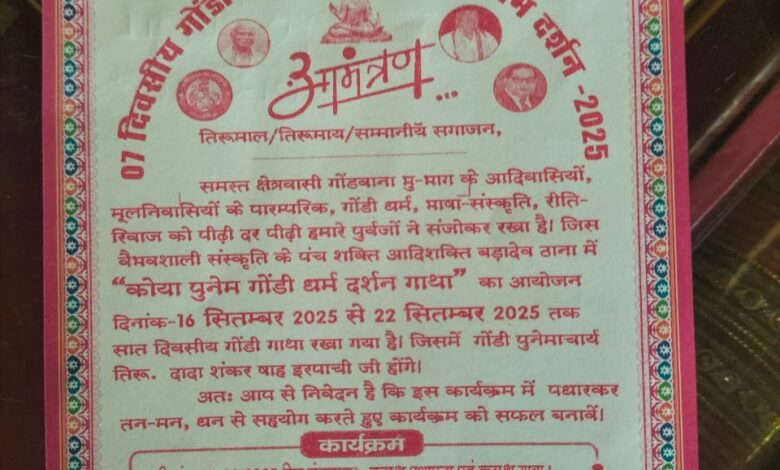 07 दिवसीय गोंडी
म दर्शन -2025
आमंत्रण ...
तिरूमाल/तिरूमाय/सम्मानीय सगाजन,
समस्त क्षेत्रवासी गोंडवाना भु-भाग के आदिवासियों,
मूलनिवासियों के पारम्परिक, गोंडी धर्म, भाषा-संस्कृति, रीति-
रिवाज को पीढ़ी दर पीढ़ी हमारे पुर्वजों ने संजोकर रखा है। जिस
बैभवशाली संस्कृति के पंच शक्ति आदिशक्ति बड़ादेव ठाना में
“कोया पुनेम गोंडी धर्म दर्शन गाथा” का आयोजन
दिनांक-16 सितम्बर 2025 से 22 सितम्बर 2025 तक
सात दिवसीय गोंडी गाथा रखा गया है। जिसमें गोंडी पुनेमाचार्य
तिरू. दादा शंकर षाह इरपाची जी होंगे।
अतः आप से निवेदन है कि इस कार्यक्रम में पधारकर
तन-मन, धन से सहयोग करते हुए कार्यक्रम को सफल बनावें।
कार्यक्रम